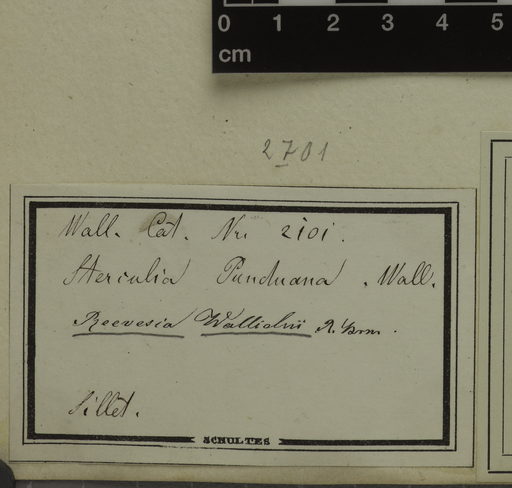 0 1 2 3 4 5
cm
2701
Wall. Cat. Nr. 2101.
Sterculia Panduana. Wall.
Reevesia Wallichii R. Brm.
Sillet.
SCHULTES